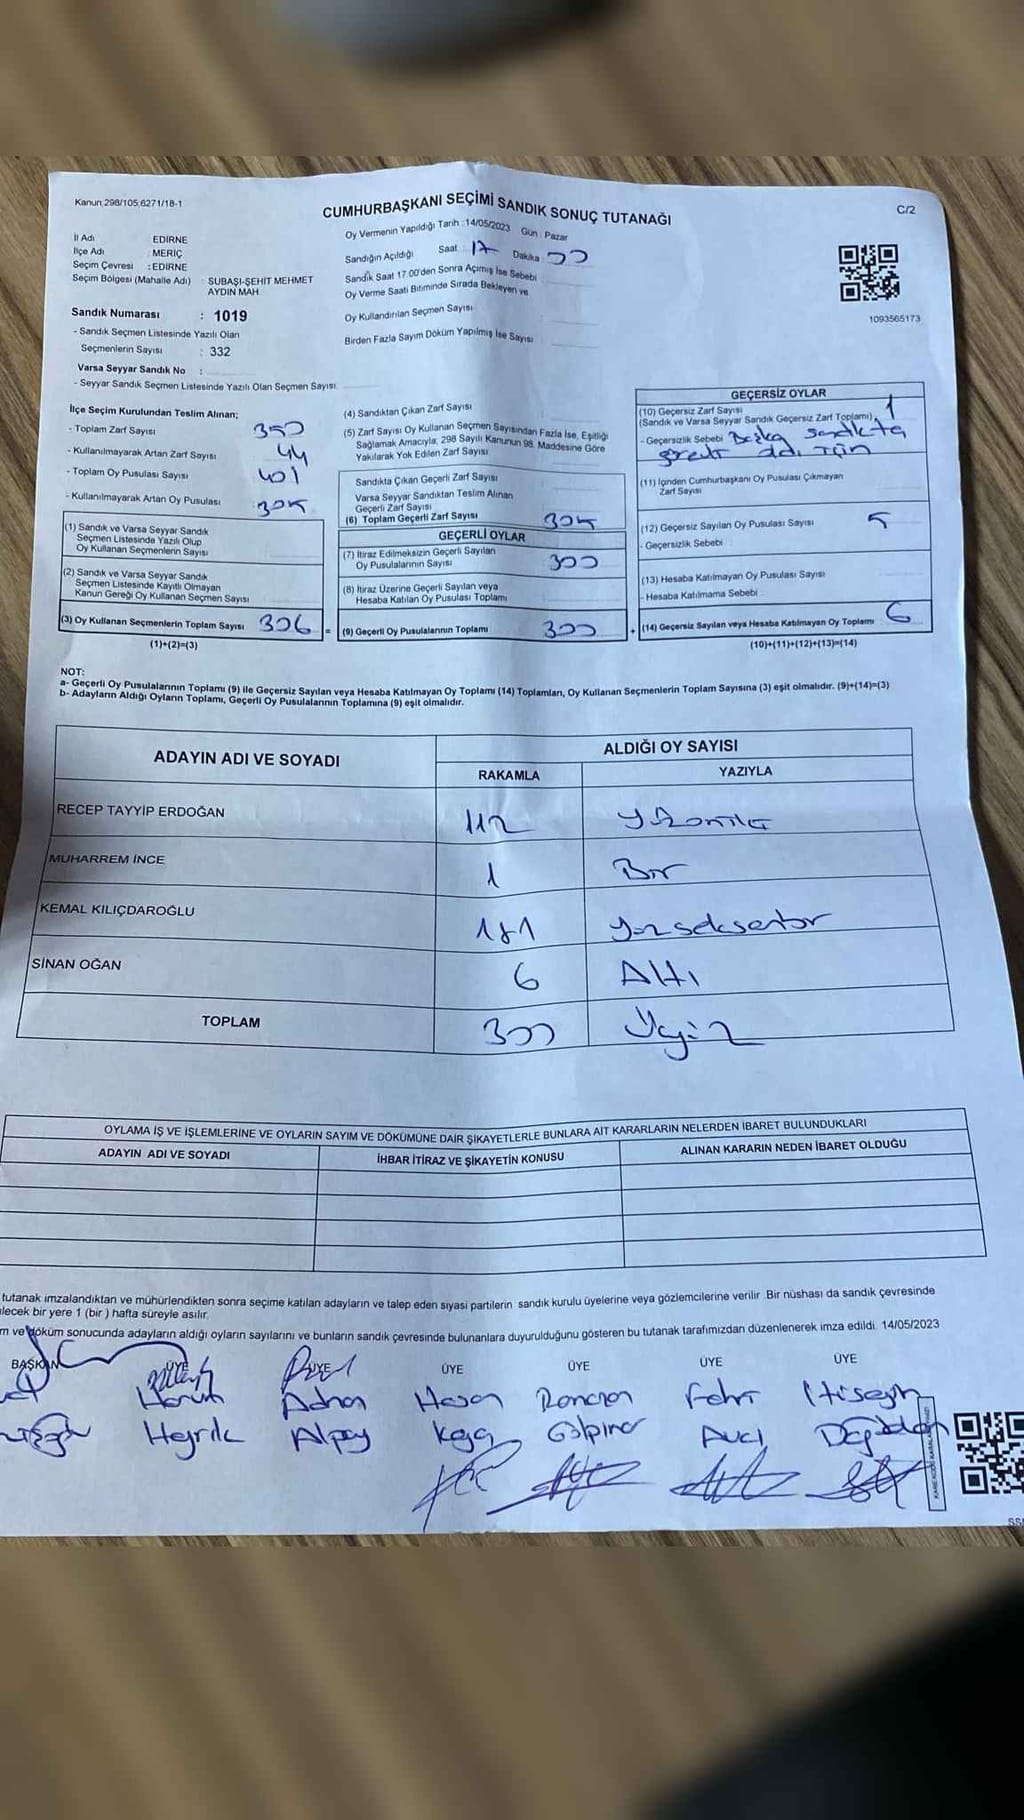 Kanun,298/105,6271/18-1
CUMHURBAŞKANI SEÇİMİ SANDIK SONUÇ TUTANAĞI
C/2
İl Adı EDİRNE
İlçe Adı MERİÇ
Seçim Çevresi : EDİRNE
Seçim Bölgesi (Mahalle Adı) : SUBAŞI-ŞEHİT MEHMET
AYDIN MAH.
Sandık Numarası : 1019
- Sandık Seçmen Listesinde Yazılı Olan
Seçmenlerin Sayısı : 332
Varsa Seyyar Sandık No :
- Seyyar Sandık Seçmen Listesinde Yazılı Olan Seçmen Sayısı:
Oy Vermenin Yapıldığı Tarih : 14/05/2023 Gün : Pazar
Sandığın Açıldığı Saat 17 Dakika 00
Sandık Saat 17.00'den Sonra Açımış İse Sebebi
Oy Verme Saati Bitiminde Sırada Bekleyen ve
Oy Kullandırılan Seçmen Sayısı
Birden Fazla Sayım Döküm Yapılmış İse Sayısı
1093565173
İlçe Seçim Kurulundan Teslim Alınan;
- Toplam Zarf Sayısı 350
- Kullanılmayarak Artan Zarf Sayısı 44
- Toplam Oy Pusulası Sayısı 401
- Kullanılmayarak Artan Oy Pusulası
(1) Sandık ve Varsa Seyyar Sandık
Seçmen Listesinde Yazılı Olup
Oy Kullanan Seçmenlerin Sayısı
(2) Sandık ve Varsa Seyyar Sandık
Seçmen Listesinde Kayıtlı Olmayan
Kanun Gereği Oy Kullanan Seçmen Sayısı
(3) Oy Kullanan Seçmenlerin Toplam Sayısı 306
(1)+(2)=(3)
(4) Sandıktan Çıkan Zarf Sayısı
(5) Zarf Sayısı Oy Kullanan Seçmen Sayısından Fazla İse, Eşitliği
Sağlamak Amacıyla, 298 Sayılı Kanunun 98. Maddesine Göre
Yakılarak Yok Edilen Zarf Sayısı
Sandıkta Çıkan Geçerli Zarf Sayısı
Varsa Seyyar Sandıktan Teslim Alınan
Geçerli Zarf Sayısı
(6) Toplam Geçerli Zarf Sayısı 305
GEÇERLİ OYLAR
(7) İtiraz Edilmeksizin Geçerli Sayılan
Oy Pusulalarının Sayısı 300
(8) İtiraz Üzerine Geçerli Sayılan veya
Hesaba Katılan Oy Pusulası Toplamı
= (9) Geçerli Oy Pusulalarının Toplamı 300
GEÇERSİZ OYLAR
(10) Geçersiz Zarf Sayısı
(Sandık ve Varsa Seyyar Sandık Geçersiz Zarf Toplamı) 1
- Geçersizlik Sebebi Başka sandıkta
için
(11) İçinden Cumhurbaşkanı Oy Pusulası Çıkmayan
Zarf Sayısı
(12) Geçersiz Sayılan Oy Pusulası Sayısı 5
- Geçersizlik Sebebi
(13) Hesaba Katılmayan Oy Pusulası Sayısı
- Hesaba Katılmama Sebebi
+ (14) Geçersiz Sayılan veya Hesaba Katılmayan Oy Toplamı 6
(10)+(11)+(12)+(13)=(14)
NOT:
a- Geçerli Oy Pusulalarının Toplamı (9) ile Geçersiz Sayılan veya Hesaba Katılmayan Oy Toplamı (14) Toplamları, Oy Kullanan Seçmenlerin Toplam Sayısına (3) eşit olmalıdır. (9)+(14)=(3)
b- Adayların Aldığı Oyların Toplamı, Geçerli Oy Pusulalarının Toplamına (9) eşit olmalıdır.
ADAYIN ADI VE SOYADI
ALDIĞI OY SAYISI
RAKAMLA YAZIYLA
RECEP TAYYİP ERDOĞAN 112
MUHARREM İNCE 1 Bir
KEMAL KILIÇDAROĞLU 181 Yüzseksenbir
SİNAN OĞAN 6 Altı
TOPLAM 300 Üçyüz
OYLAMA İŞ VE İŞLEMLERİNE VE OYLARIN SAYIM VE DÖKÜMÜNE DAİR ŞİKAYETLERLE BUNLARA AİT KARARLARIN NELERDEN İBARET BULUNDUKLARI
ADAYIN ADI VE SOYADI İHBAR İTİRAZ VE ŞİKAYETİN KONUSU ALINAN KARARIN NEDEN İBARET OLDUĞU
tutanak imzalandıktan ve mühürlendikten sonra seçime katılan adayların ve talep eden siyasi partilerin sandık kurulu üyelerine veya gözlemcilerine verilir .Bir nüshası da sandık çevresinde
ilecek bir yere 1 (bir ) hafta süreyle asılır.
m ve döküm sonucunda adayların aldığı oyların sayılarını ve bunların sandık çevresinde bulunanlara duyurulduğunu gösteren bu tutanak tarafımızdan düzenlenerek imza edildi. 14/05/2023
BAŞKAN ÜYE ÜYE ÜYE ÜYE ÜYE ÜYE
Harun Adnan Hasan Ramazan Fahri Hüseyin
Alpay Kaya Gülpınar Avcı